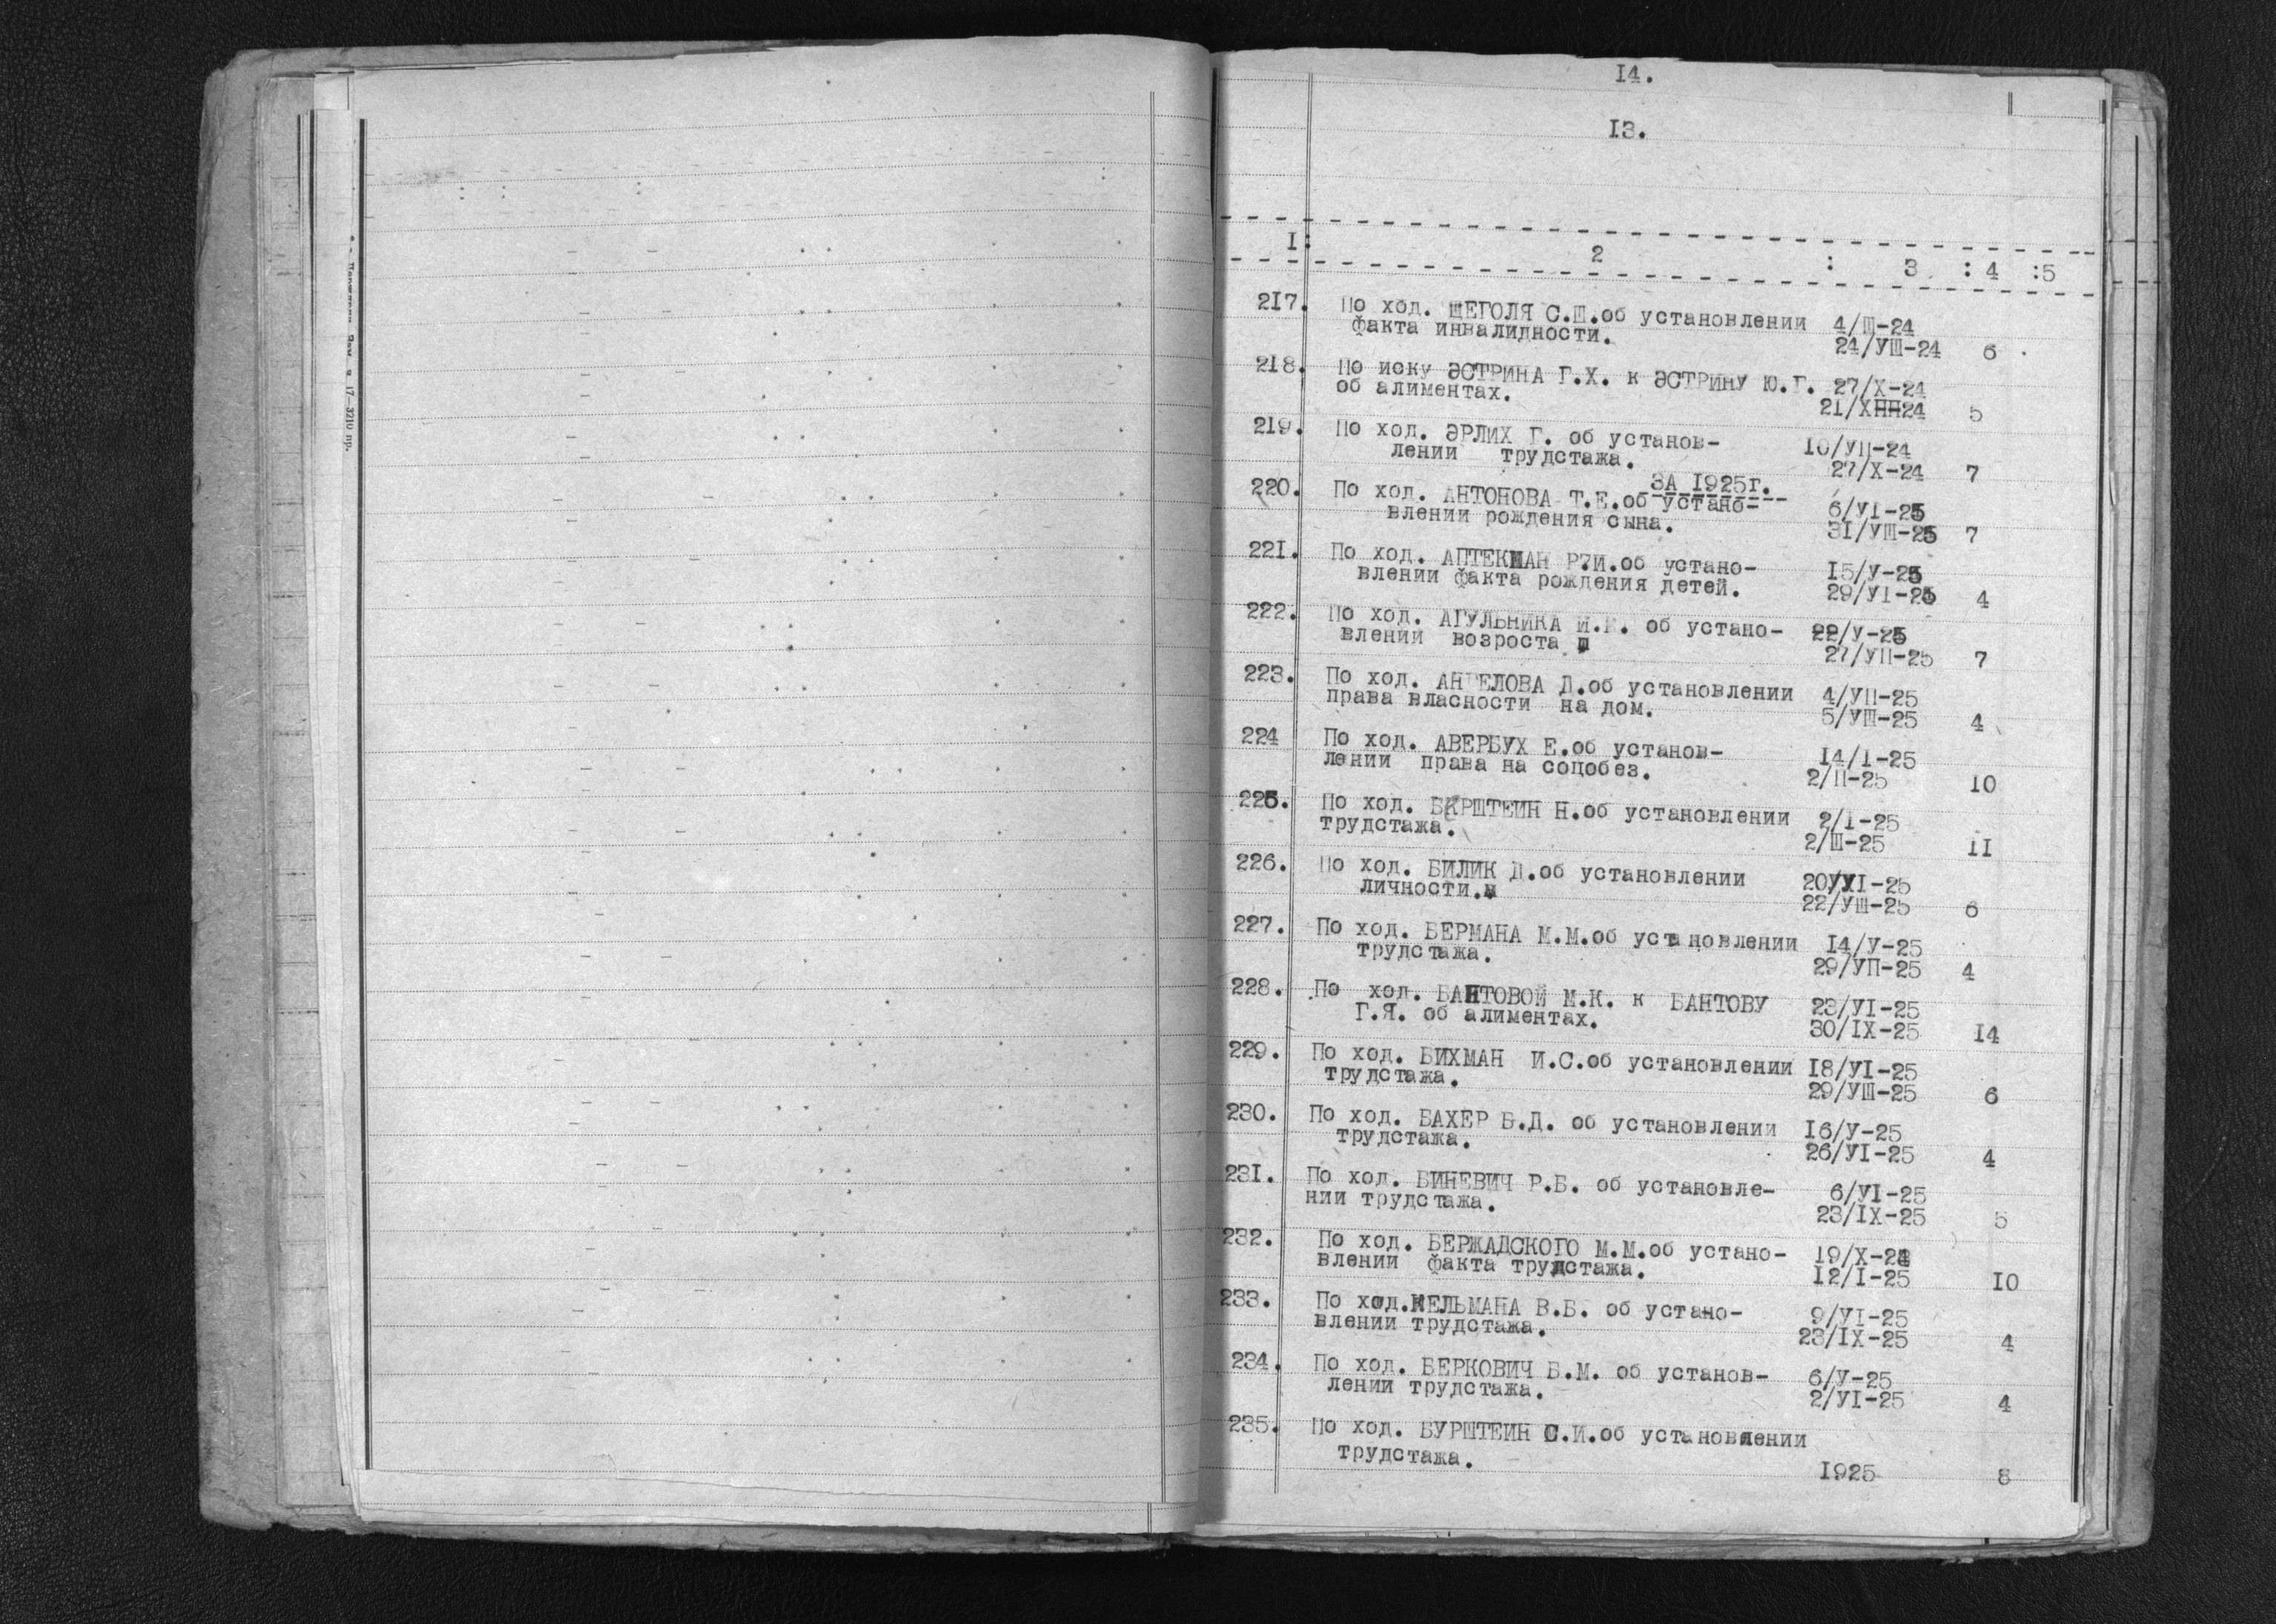 14.
13.
I: 2 : 3 : 4 :5
217. По ход. ЩЕГОЛЯ С.Ш.об установлении 4/Ш-24
факта инвалидности. 24/УШ-24 6
218. По иску ЭСТРИНА Г.Х. к ЭСТРИНУ Ю.Г. 27/Х-24
об алиментах. 21/ХПП24 5
219. По ход. ЭРЛИХ Г. об установ- 10/УП-24
лении трудстажа. 27/Х-24 7
ЗА 1925г.
220. По ход. АНТОНОВА Т.Е.об устано- 6/УI-25
влении рождения сына. 31/УШ-25 7
221. По ход. АПТЕКМАН Р?И.об устано- 15/У-25
влении факта рождения детей. 29/УI-25 4
222. По ход. АГУЛЬНИКА И. об устано- 22/У-25
влении возроста 27/УП-25 7
223. По ход. АНГЕЛОВА Д.об установлении 4/УП-25
права власности на дом. 5/УШ-25 4
224 По ход. АВЕРБУХ Е.об установ- 14/I-25
лении права на соцобез. 2/П-25 10
225. По ход. Н.об установлении 2/I-25
трудстажа. 2/Ш-25 11
226. По ход. БИЛИК Д.об установлении
личности. 22/УШ-25 6
227. По ход. БЕРМАНА М.М.об установлении 14/У-25
трудстажа. 29/УП-25 4
228. По ход. БАНТОВОЙ М.К. к БАНТОВУ 23/УI-25
Г.Я. об алиментах. 30/IX-25 14
229. По ход. БИХМАН И.С.об установлении 18/УI-25
трудстажа. 29/УШ-25 6
230. По ход. БАХЕР Б.Д. об установлении 16/У-25
трудстажа. 26/УI-25 4
231. По ход. БИНЕВИЧ Р.Б. об установле- 6/УI-25
нии трудстажа. 23/IX-25 5
232. По ход. БЕРЖАДСКОГО М.М.об устано- 19/Х-24
влении факта трудстажа. 12/I-25 10
233. По ход. В.Б. об устано- 9/УI-25
влении трудстажа. 23/IX-25 4
234. По ход. БЕРКОВИЧ Б.М. об установ- 6/У-25
лении трудстажа. 2/УI-25 4
235. По ход. БУРШТЕИН С.И.об установлении
трудстажа. 1925 8